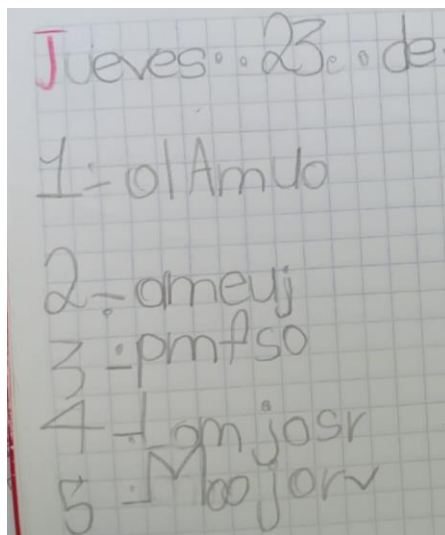 Jueves..23..de
1-olAmUo
2-.ameuj
3-pmfso
4-Lomjosr
5-Moojorv